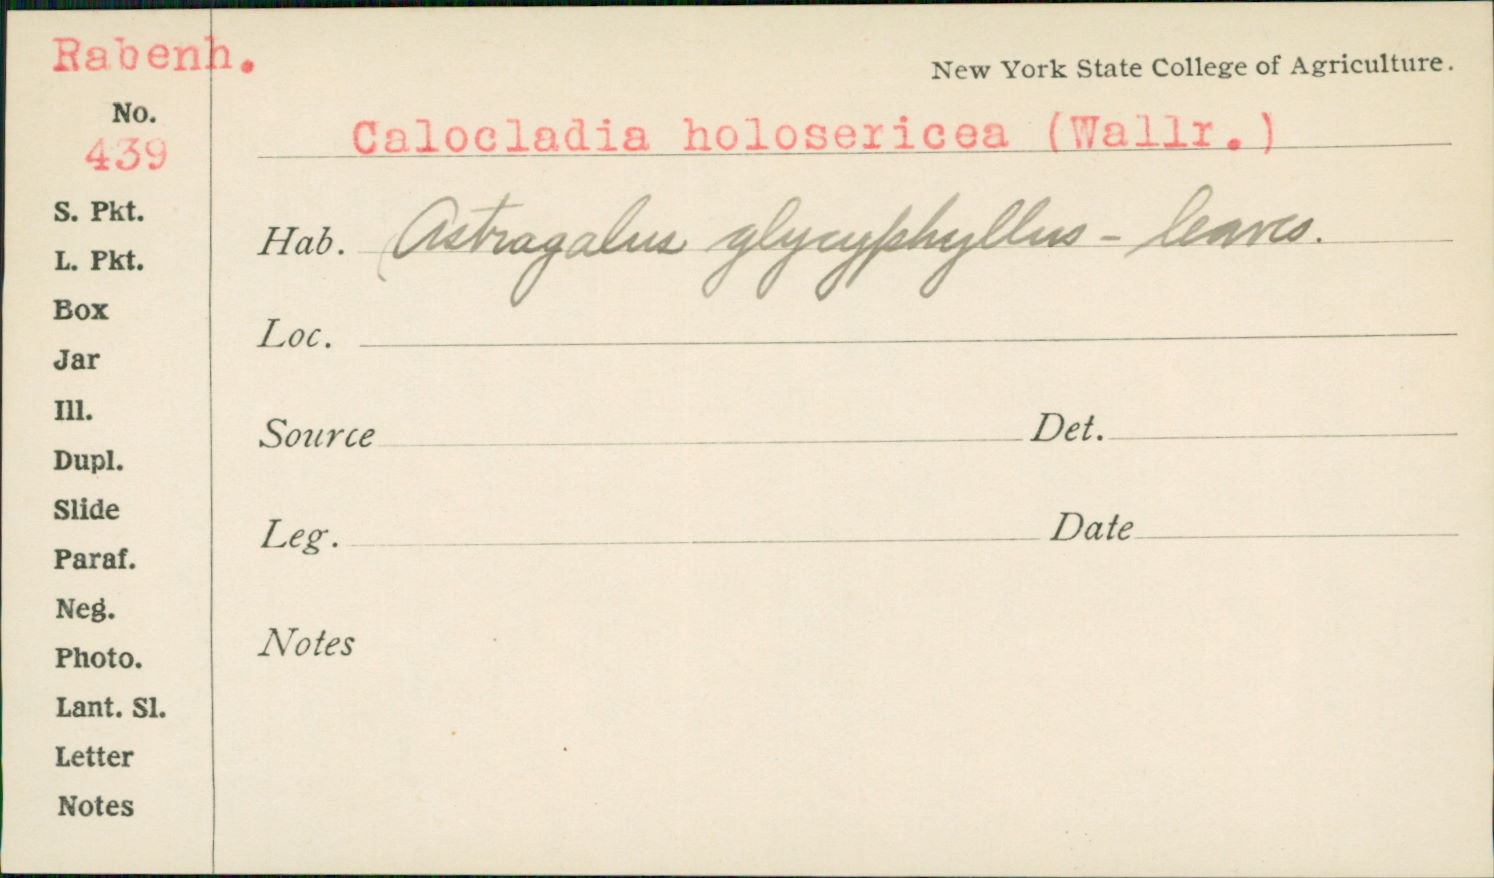 Rabenh.
New York State College of Agriculture.
No.
439
Calocladia holosericea (Wallr.)
S. Pkt.
Hab. Astragalus glycyphyllus - leaves.
L. Pkt.
Box
Loc.
Jar
Ill.
Source Det.
Dupl.
Slide
Leg. Date
Paraf.
Neg.
Notes
Photo.
Lant. Sl.
Letter
Notes